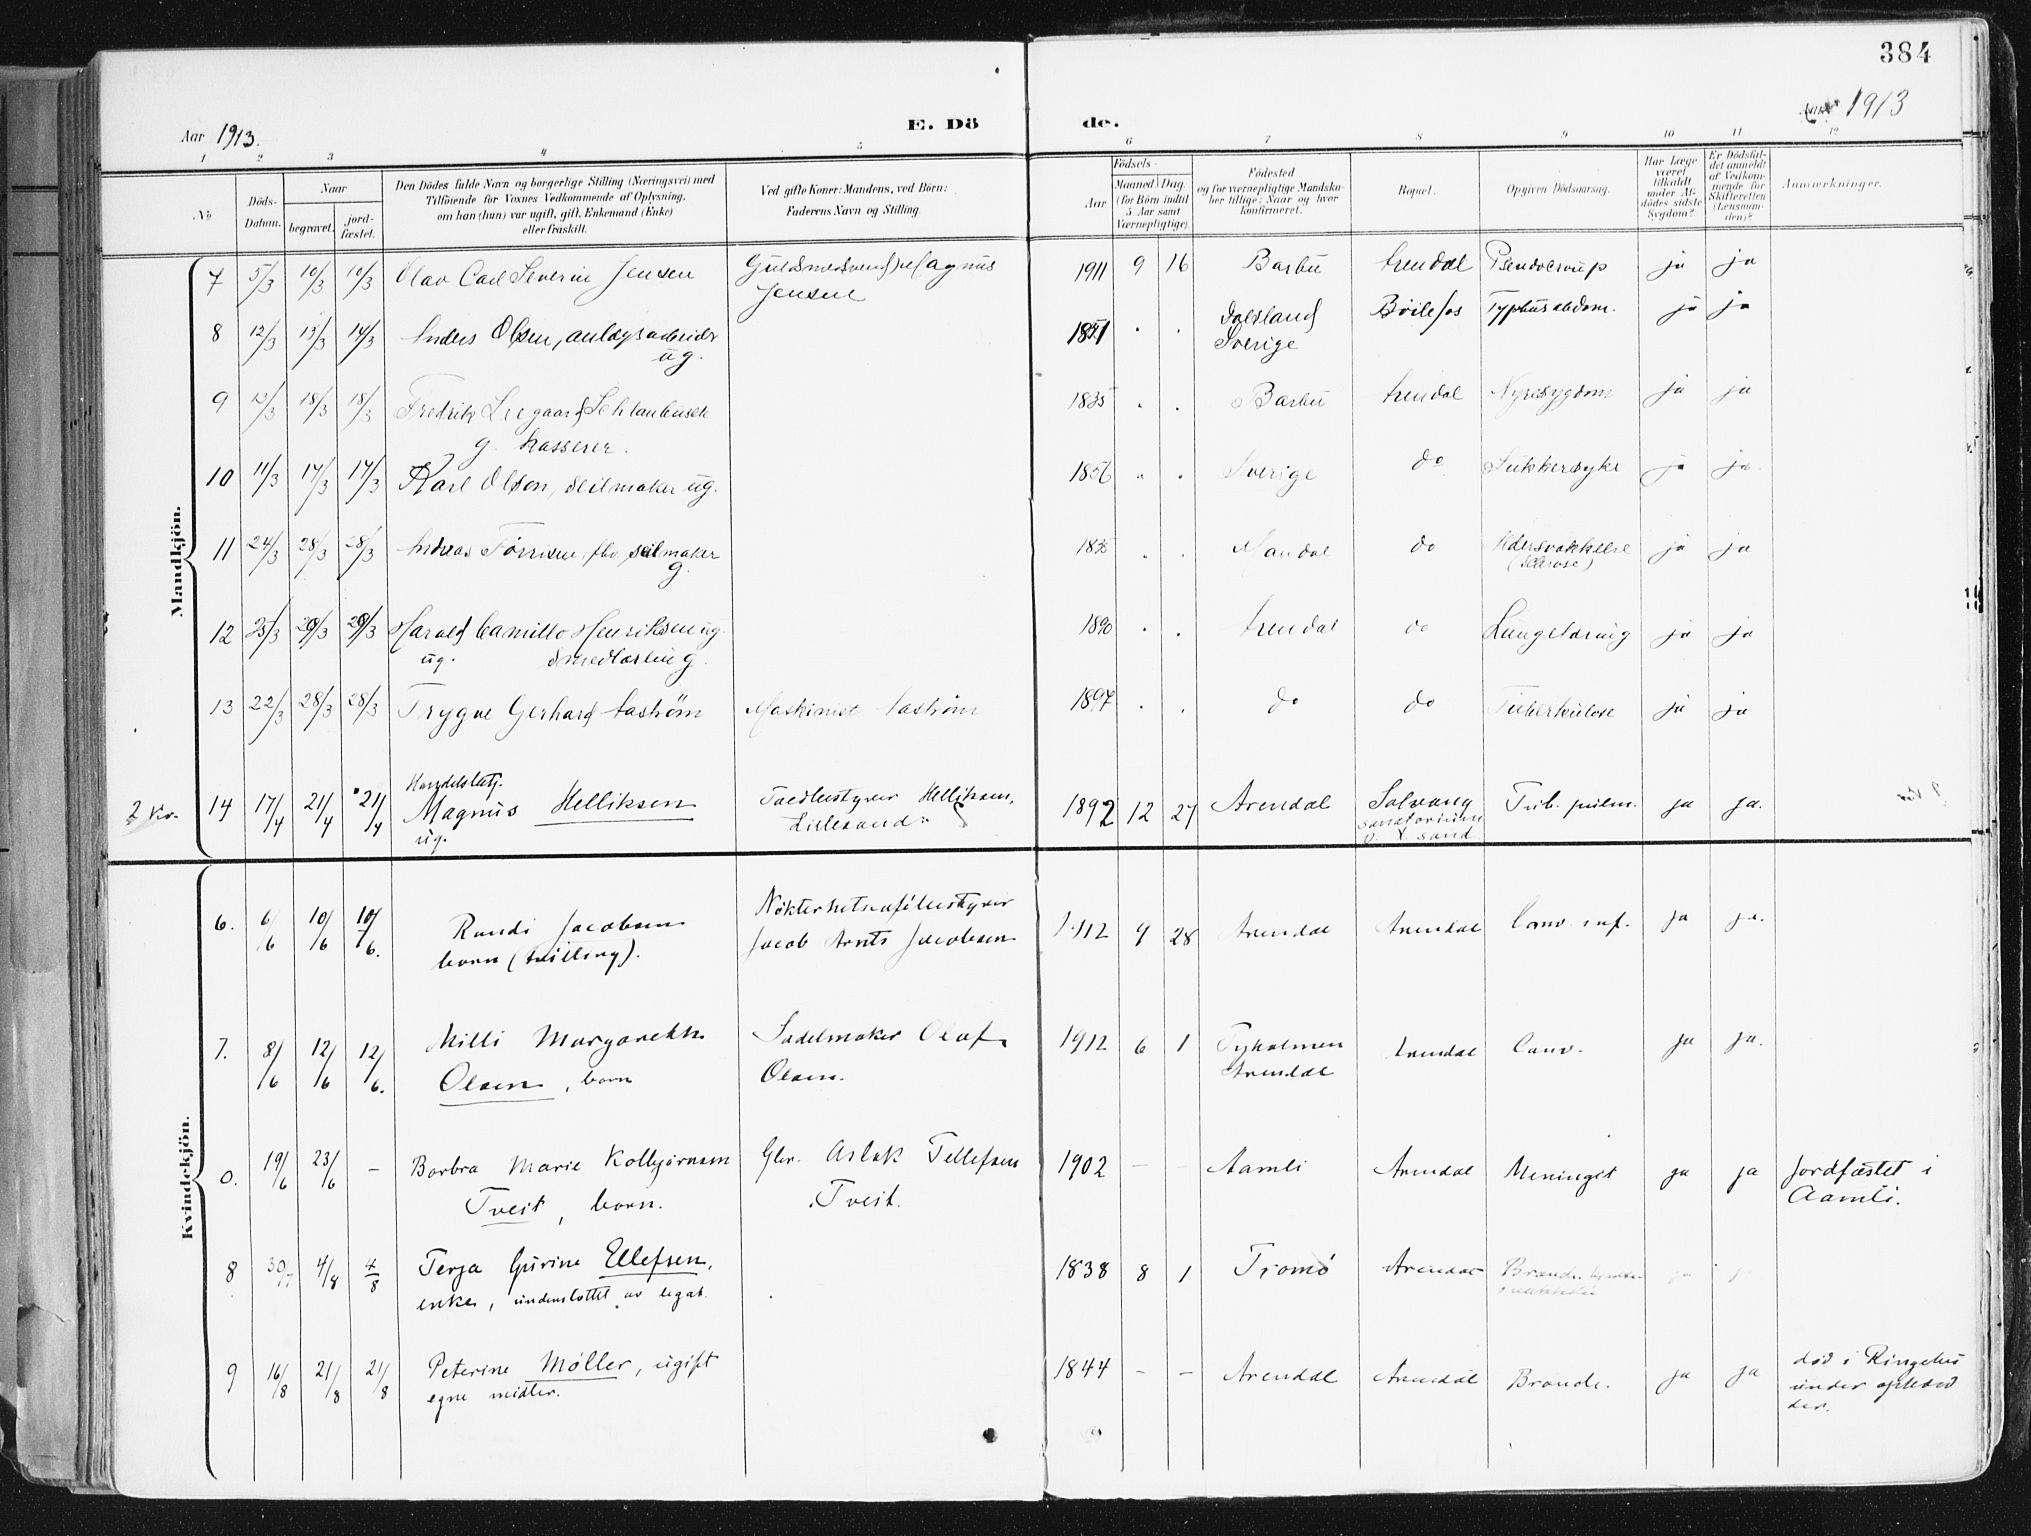 384
Aar 1913.
E. Dö de.
Aar 1913
1 2 3 4 5 6 7 8 9 10 11 12
No
Döds-Datum.
Naar
begravet.
jord-fæstet.
Den Dödes fulde Navn og borgerlige Stilling (Næringsvei) med
Tilföiende for Voxnes Vedkommende af Oplysning,
om han (hun) var ugift, gift, Enkemand (Enke)
eller fraskilt.
Ved gifte Koner: Mandens, ved Börn:
Faderens Navn og Stilling.
Födsels-
Aar
Maaned Dag
(for Börn indtil
5 Aar samt
Værnepligtige)
Födested
og for værnepligtige Mandska-
ber tillige: Naar og hvor
konfirmeret.
Bopæl.
Opgiven Dödsaarsag.
Har Læge
været
tilkaldt
under Af-
dödes sidste
Sygdom?
Er Dödsfal-
det anmeldt
af Vedkom-
mende for
Skifteretten
(Lensman-
den)?
Anmærkninger.
Mandkjön.
7 5/3 10/3 10/3 Olav Carl Severin Jensen Magnus 1911 9 16 Barbu Arendal Pseudocroup ja ja
Jensen
8 12/3 14/3 Anders Olsen, anlægsarbeider . . Dalsland Böilefos Typhus abdom. ja ja
ug. Sverige
9 13/3 18/3 18/3 Fredrik 1835 . . Barbu Arendal Nyresygdom ja ja
g. kasserer.
10 11/3 17/3 17/3 Karl Olsen, seilmaker ug. 1856 . . Sverige do Sukkersyke ja ja
11 24/3 28/3 28/3 Andreas seilmaker . . Mandal do ja ja
g.
12 25/3 29/3 29/3 Harald Camillo Henriksen ug. 1890 . . Arendal do ja ja
ug. smedlærling.
13 22/3 28/3 28/3 Trygve Gerhard Aaström Maskinist Aaström 1897 . . do do Tuberkulose ja ja
2 Kr. 14 17/4 21/4 21/4 Handelsbetj. Magnus Helliksen Helliksen, 1892 12 27 Arendal Solvang Tub. pulm. ja ja.
ug. Lillesand. sanatorium
sand
Kvindekjön.
6. 6/6 10/6 10/6. Randi Jacobsen 1912 9 28 Arendal Arendal ja ja.
barn (tvilling). Jacob Arnts Jacobsen
7. 8/6 12/6 12/6. Milli Margarethe Sadelmaker Olaf 1912 6 1 Tyholmen Arendal Conv. ja ja.
Olsen, barn Olsen. Arendal
0. 19/6 23/6 – Barbra Marie Kolbjørnsen Gbr. Aslak Tellefsen 1902 – – Aamli Arendal Meningit ja ja Jordfæstet i
Tveit, barn. Tveit. Aamli.
8 30/7 4/8 4/8 Terja Gurine Ellefsen, 1838 8 1 Tromö Arendal
enke, understøttet av legat.
9 16/8 21/8 21/8 Peterine Møller, ugift 1844 – – Arendal Arendal ja ja død i Ringebu
egne midler. under ophold
der.